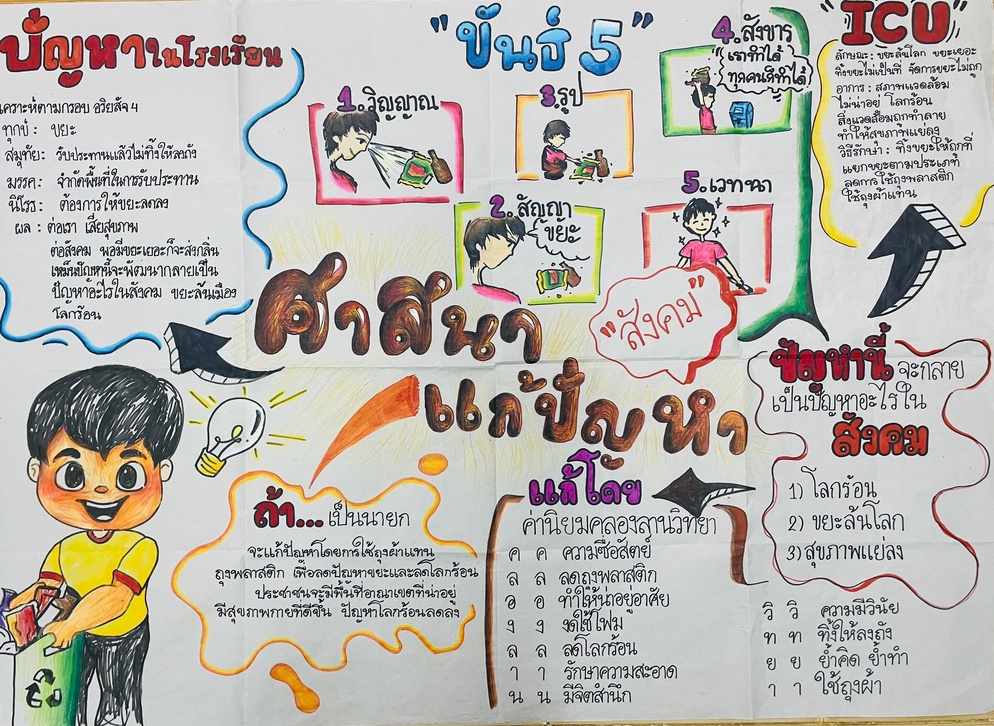 ปัญหาในโรงเรียน
เคราะห์ตามกรอบ อริยสัจ 4
ทุกข์ : ขยะ
สมุทัย: รับประทานแล้วไม่ทิ้งให้ลงถัง
มรรค: จำกัดพื้นที่ในการรับประทาน
นิโรธ: ต้องการให้ขยะลดลง
ผล : ต่อเรา เสียสุขภาพ
ต่อสังคม พอมีขยะเยอะก็จะส่งกลิ่น
เหม็นปัญหานี้จะพัฒนากลายเป็น
ปัญหาอะไรในสังคม ขยะล้นเมือง
โลกร้อน
"ขันธ์ 5"
1. วิญญาณ
3. รูป
4. สังขาร
เราทำได้
ทุกคนก็ทำได้
2. สัญญา
ขยะ
5. เวทนา
"สังคม"
"ICU"
ลักษณะ: ขยะล้นโลก ขยะเยอะ
ทิ้งขยะไม่เป็นที่ จัดการขยะไม่ถูก
อาการ : สภาพแวดล้อม
ไม่น่าอยู่ โลกร้อน
สิ่งแวดล้อมถูกทำลาย
ทำให้สุขภาพแย่ลง
วิธีรักษา : ทิ้งขยะให้ถูกที่
แยกขยะตามประเภท
ลดการใช้ถุงพลาสติก
ใช้ถุงผ้าแทน
ศาสนา
แก้ปัญหา
ปัญหานี้ จะกลาย
เป็นปัญหาอะไรใน
สังคม
1) โลกร้อน
2) ขยะล้นโลก
3) สุขภาพแย่ลง
ถ้า...เป็นนายก
จะแก้ปัญหาโดยการใช้ถุงผ้าแทน
ถุงพลาสติก เพื่อลดปัญหาขยะและลดโลกร้อน
ประชาชนจะมีพื้นที่อาณาเขตที่น่าอยู่
มีสุขภาพกายที่ดีขึ้น ปัญหาโลกร้อนลดลง
แก้โดย
ค่านิยมคลองลานวิทยา
ค ค ความซื่อสัตย์
ล ล ลดถุงพลาสติก
อ อ ทำให้น่าอยู่อาศัย
ง ง งดใช้โฟม
ล ล ลดโลกร้อน
า า รักษาความสะอาด
น น มีจิตสำนึก
วิ วิ ความมีวินัย
ท ท ทิ้งให้ลงถัง
ย ย ย้ำคิด ย้ำทำ
า า ใช้ถุงผ้า